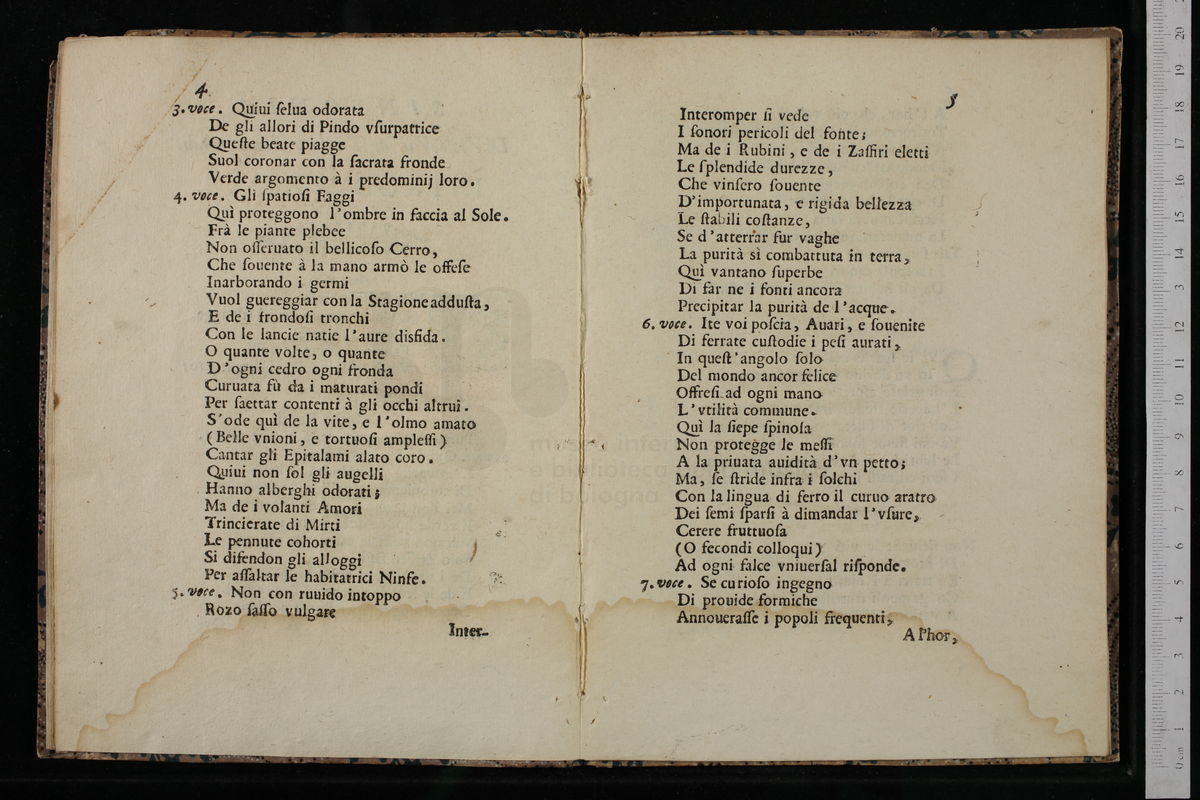 4
3. voce. Quiui ſelua odorata
De gli allori di Pindo vſurpatrice
Queſte beate piagge
Suol coronar con la ſacrata fronde
Verde argomento à i predominij loro.
4. voce. Gli ſpatioſi Faggi
Quì proteggono l'ombre in faccia al Sole.
Frà le piante plebee
Non oſſeruato il bellicoſo Cerro,
Che ſouente à la mano armò le offeſe
Inarborando i germi
Vuol guereggiar con la Stagione adduſta,
E de i frondoſi tronchi
Con le lancie natie l'aure disfida.
O quante volte, o quante
D'ogni cedro ogni fronda
Curuata fù da i maturati pondi
Per ſaettar contenti à gli occhi altrui.
S'ode quì de la vite, e l'olmo amato
(Belle vnioni, e tortuoſi ampleſſi)
Cantar gli Epitalami alato coro.
Quiui non ſol gli augelli
Hanno alberghi odorati;
Ma de i volanti Amori
Trincierate di Mirti
Le pennute cohorti
Si difendon gli alloggi
Per aſſaltar le habitatrici Ninfe.
5. voce. Non con ruuido intoppo
Rozo ſaſſo vulgare
Inter-
5
Interomper ſi vede
I ſonori pericoli del fonte;
Ma de i Rubini, e de i Zaffiri eletti
Le ſplendide durezze,
Che vinſero ſouente
D'importunata, e rigida bellezza
Le ſtabili coſtanze,
Se d'atterrar fur vaghe
La purità sì combattuta in terra,
Quì vantano ſuperbe
Di far ne i fonti ancora
Precipitar la purità de l'acque.
6. voce. Ite voi poſcia, Auari, e ſouenite
Di ferrate cuſtodie i peſi aurati,
In queſt'angolo ſolo
Del mondo ancor felice
Offreſi ad ogni mano
L'vtilità commune.
Quì la ſiepe ſpinoſa
Non protegge le meſſi
A la priuata auidità d'vn petto;
Ma, ſe ſtride infra i ſolchi
Con la lingua di ferro il curuo aratro
Dei ſemi ſparſi à dimandar l'vſure,
Cerere fruttuoſa
(O fecondi colloqui)
Ad ogni falce vniuerſal riſponde.
7. voce. Se curioſo ingegno
Di prouide formiche
Annoueraſſe i popoli frequenti,
A l'hor,